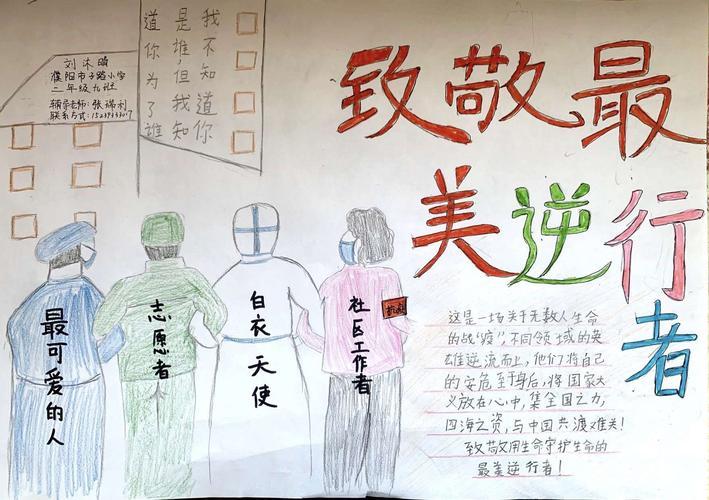 刘沐晴
濮阳市子路小学
二年级九班
辅导老师:张瑞利
联系方式:
我不知道你
是谁,但我知
道你为了谁
致敬最
美逆行
者
最可爱的人
志愿者
白衣天使
社区工作者
这是一场关于无数人生命
的战“疫”,不同领域的英
雄逆流而上,他们将自己
的安危至于身后,将国家大
义放在心中,集全国之力,
四海之资,与中国共渡难关!
致敬用生命守护生命的
最美逆行者!